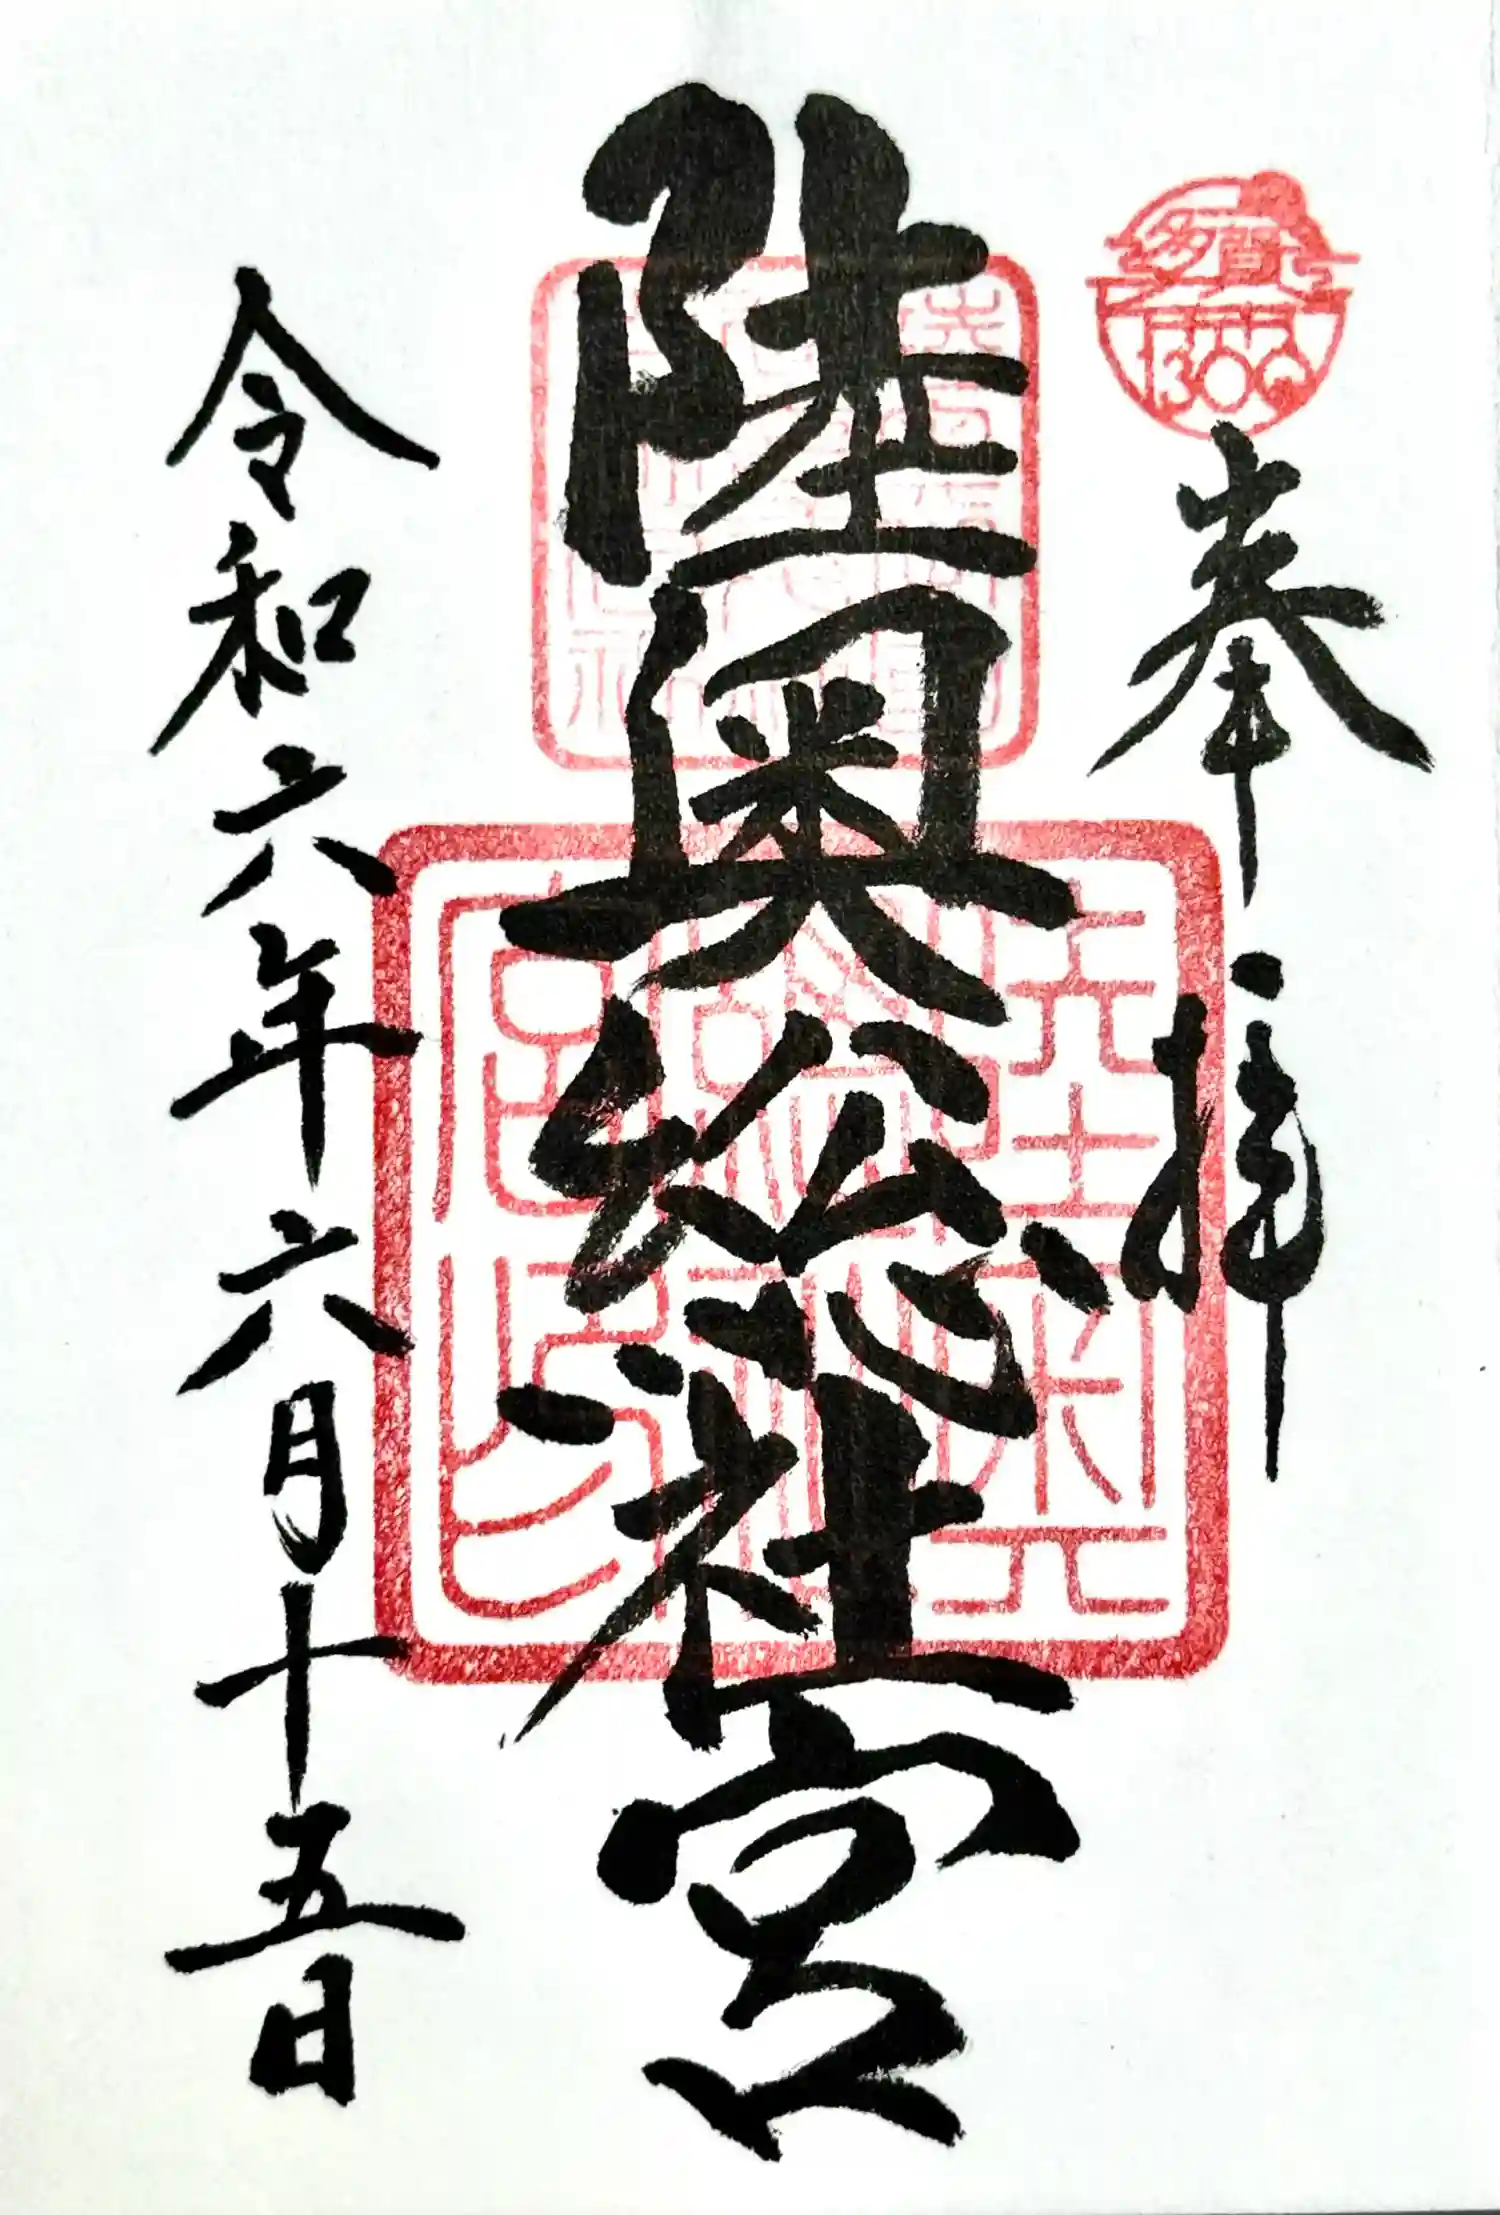 多賀城
1300
奉拝
陸奥総社宮
令和六年六月十五日